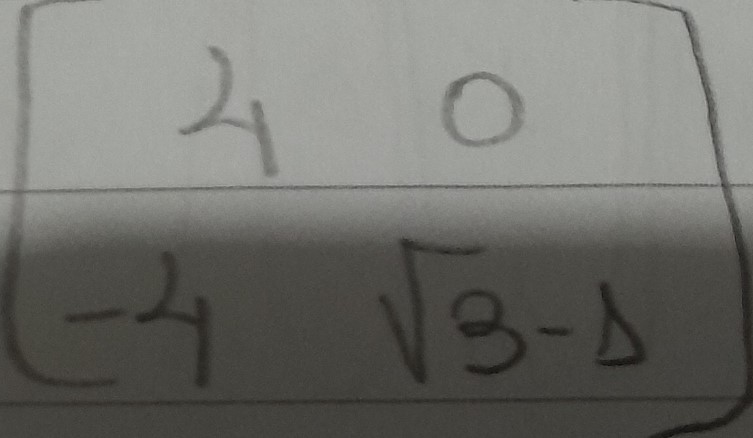 4 0
-4 √3-Δ